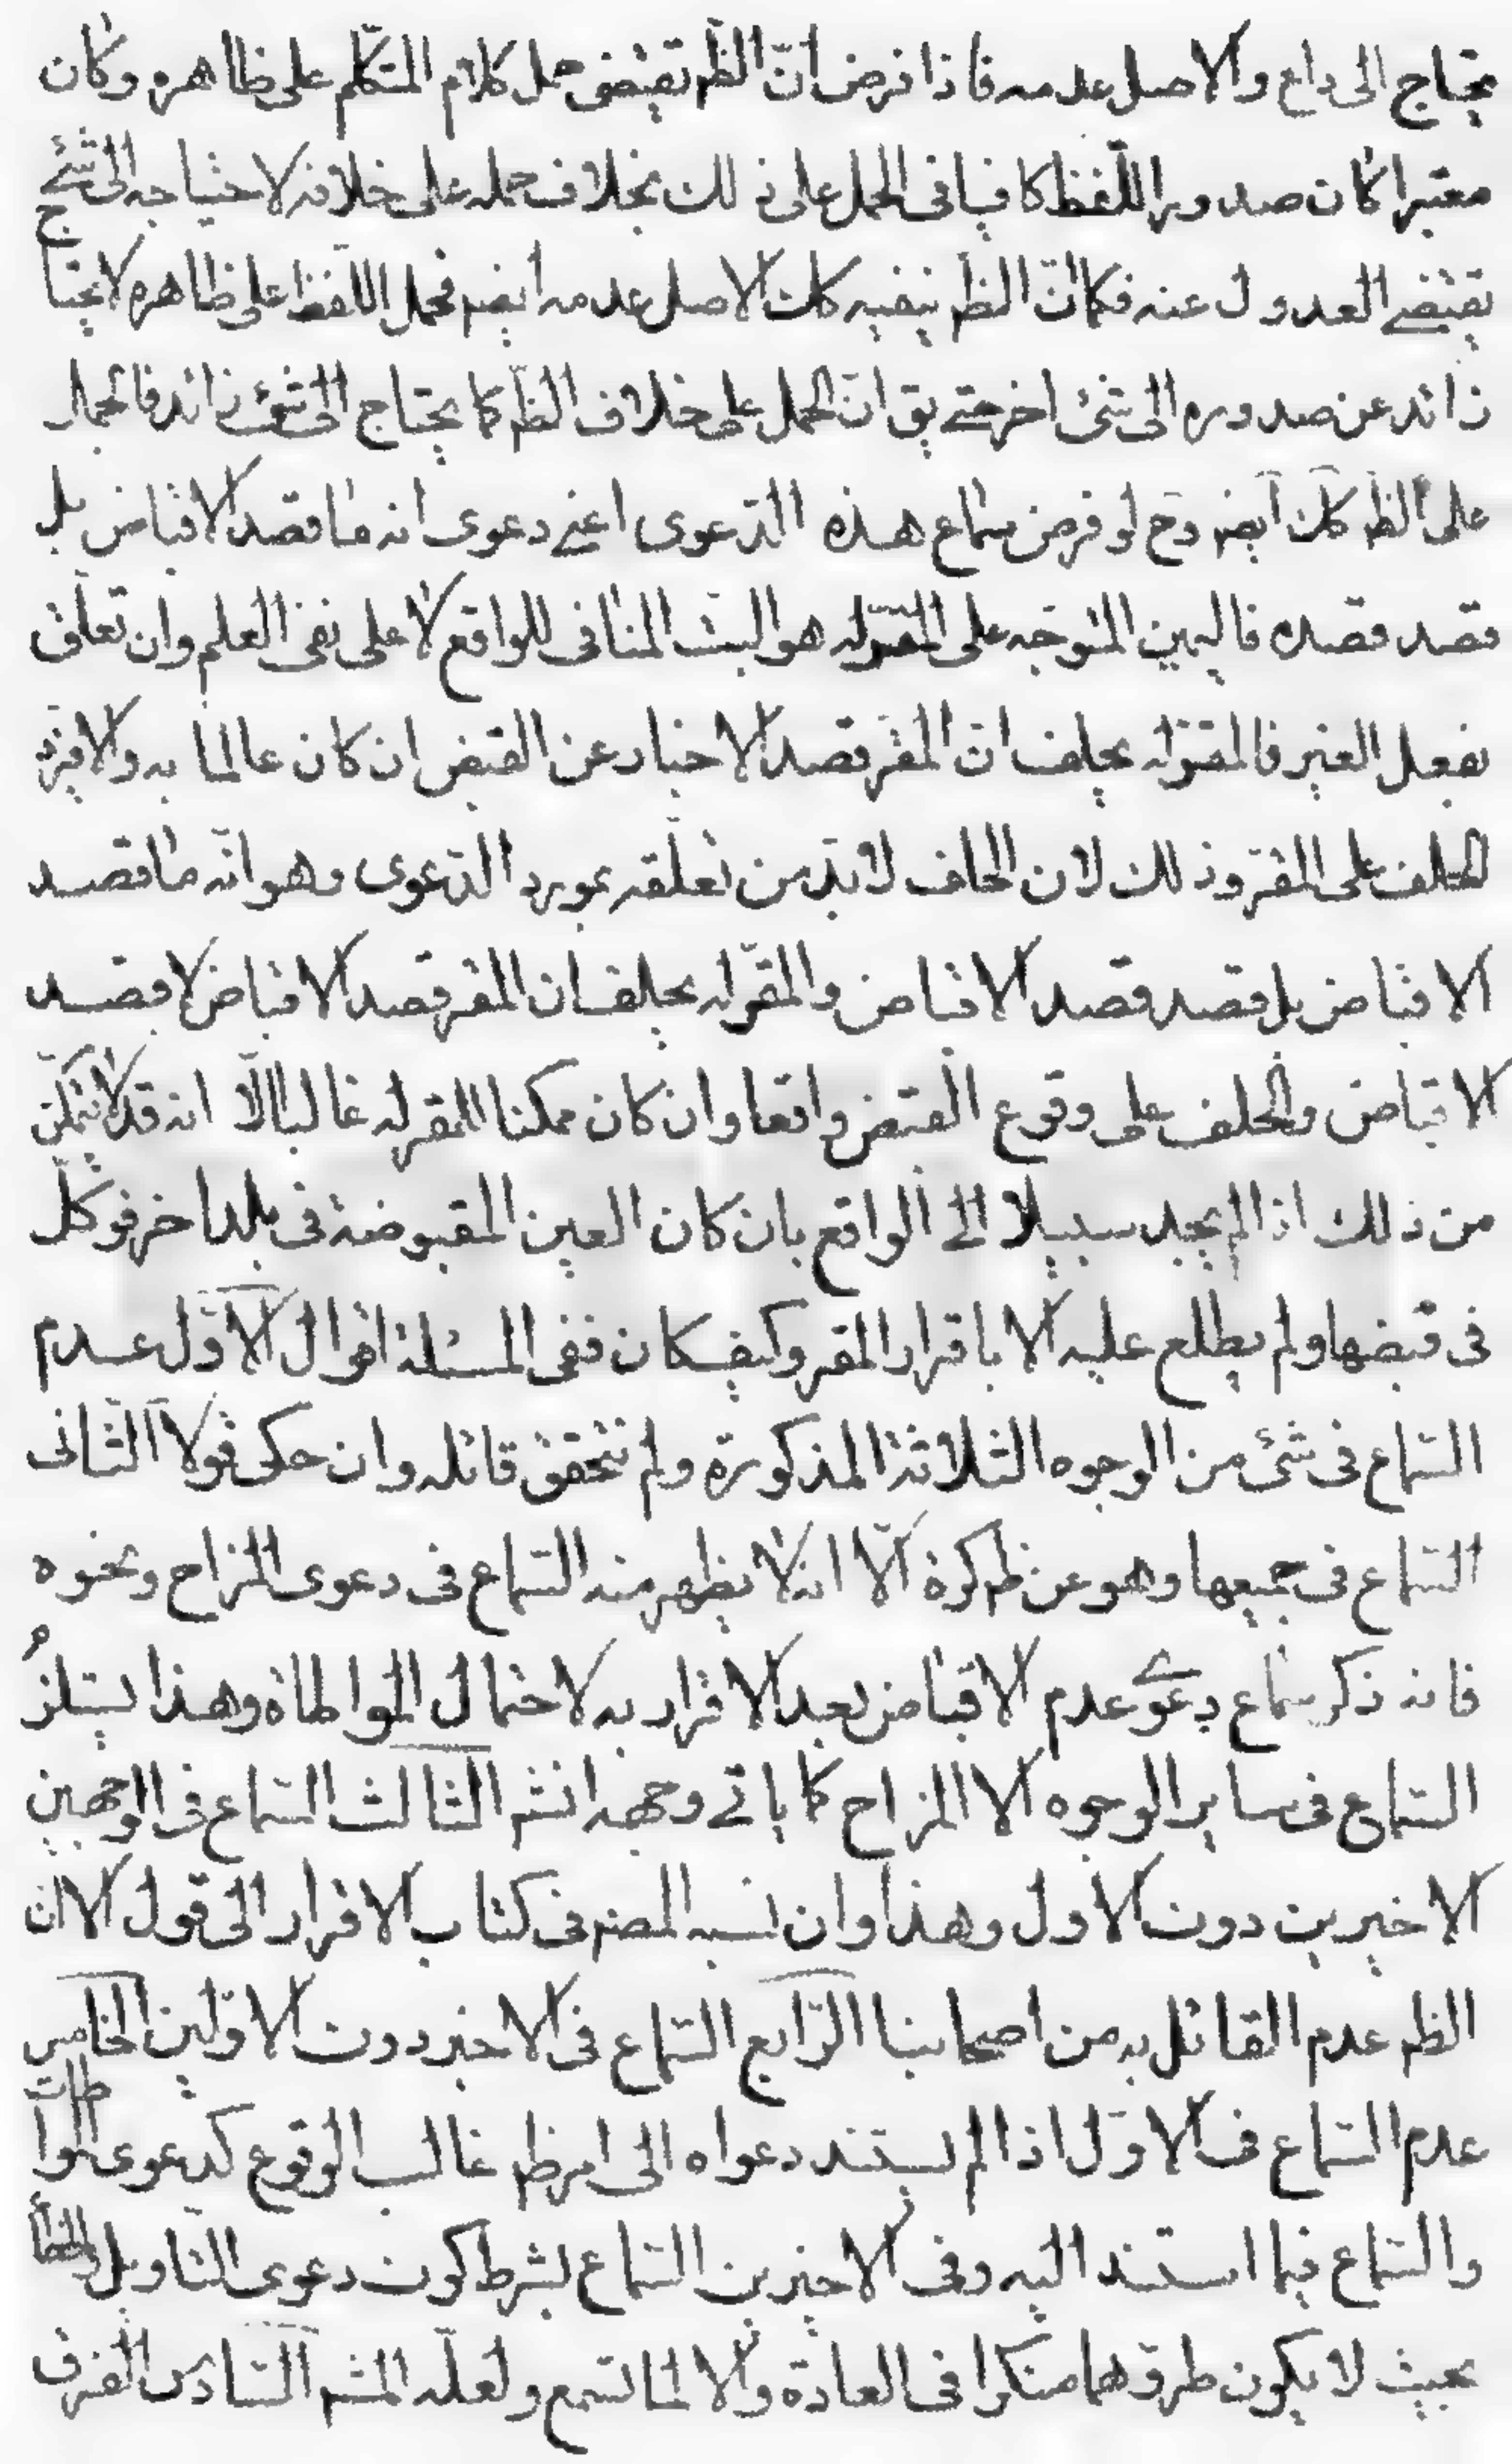 يحتاج الى داع والاصل عدمه فاذا فرض انّ الظّم تقيضى حمل كلام المتكلّم على ظاهره وكان
معتبرا كان صدور اللّفظ كافيا فى الحمل على ذلك بخلاف حمله على خلافه لاحتياجه الى شئ
يقتضے العدول عنه فكما انّ الظم ينفيه كك الاصل عدمه ايضم فحمل اللّفظ على ظاهره لا يحتاج
زائد عن صدوره الى شئ اخر حتے يق انّ الحمل على خلاف الظم كما يحتاج الى شئ زائد فالحمل
على الظم كك ايضم وح لو فرض سماع هذه الدّعوى اعنے دعوى انه ما قصد الاقباض بل
قصد قصده فاليمين المتوجّه على المقرّله هو البت المنافى للواقع لا على نفى العلم وان تعلّق
بفعل الغير فالمقرّله يحلف انّ المقرّ قصد الاخبار عن القبض ان كان عالما به والا فيردّ
الحلف على المقرّ وذلك لان الحلف لابدّ من تعلّقه بمورد الدّعوى وهو انّه ما قصد
الاقباض بل قصد قصد الاقباض والمقرّله يحلف ان المقر قصد الاقباض لا قصد
الاقباض والحلف على وقوع القبض واقعا وان كان ممكنا للمقر له غالبا الّا انه قد لا يتمكّن
من ذلك اذا لم يجد سبيلا الے الواقع بان كان العين المقبوضة فى بلد اخر فوكّل
فى قبضها ولم يطلع عليه الا باقرار المقر وكيفكان ففى المسئلة اقوال الاوّل عدم
السّماع فى شئ من الوجوه الثلاثة المذكورة ولم نتحقق قائله وان حكى قولا الثّانى
السّماع فى جميعها وهو عن ظم كرة الّا انه لا يظهر منه السّماع فى دعوى المزاح ونحوه
فانه ذكر سماع دعوے عدم الاقباض بعد الاقرار به لاحتمال المواطاة وهذا يستلزم
السّماع فى ساير الوجوه الا المزاح كما ياتے وجهه انشم الثالث السّماع فى الوجهين
الاخيرين دون الاول وهذا وان نسبه المصم فى كتاب الاقرار الى قول الا انّ
الظم عدم القائل به من اصحابنا الرّابع السّماع فى الاخير دون الاوّلين الخامس
عدم السّماع فى الاوّل اذا لم يستند دعواه الى امر ظم غالب الوقوع كدعوى المواطات
والسّماع فيما استند اليه وفى الاخيرين السّماع بشرط كون دعوى التاويل والخطأ
بحيث لا يكون طروهما منكرا فى العادة والا لما تسمع ولعلّه المشم السّادس الفرق